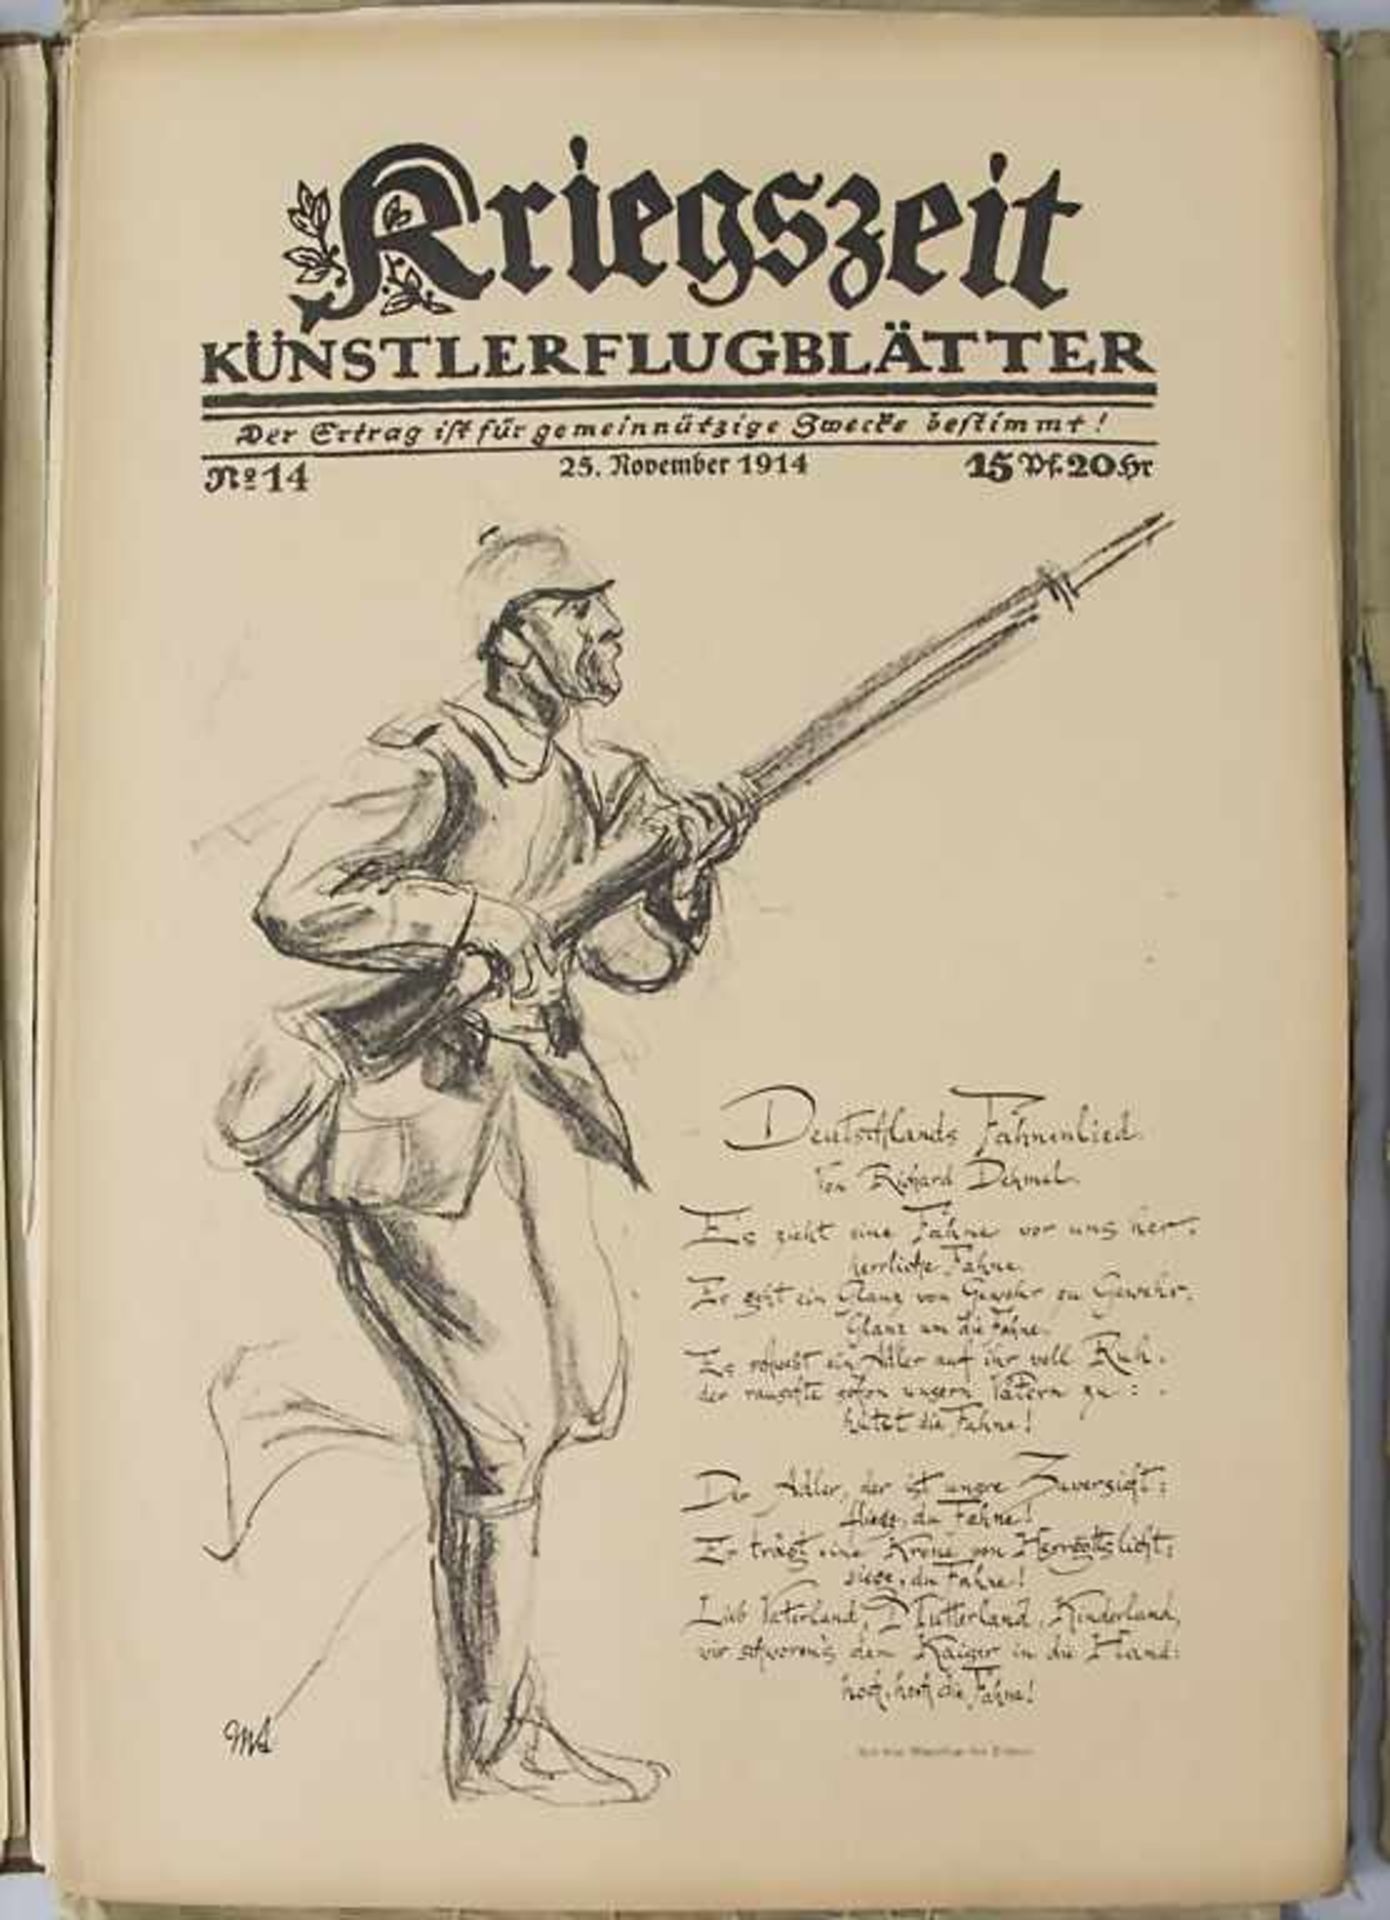 Kriegszeit
KÜNSTLERFLUGBLÄTTER
Der Ertrag ist für gemeinnützige Zwecke bestimmt!
No 14
25. November 1914
15 Pf. 20 Hr
Deutschlands Fahnenlied.
Von Richard Dehmel.
Es zieht eine Fahne vor uns her,
herrliche Fahne.
Es geht ein Glanz von Gewehr zu Gewehr,
Glanz um die Fahne.
Es schwebt ein Adler auf ihr voll Ruh,
der rauschte schon unsern Vätern zu:
hütet die Fahne!
Der Adler, der ist unsre Zuversicht:
fliege, du Fahne!
Er trägt eine Krone von Herrgottslicht:
siege, du Fahne!
Lieb Vaterland, Mutterland, Kinderland,
wir schworen's dem Kaiser in die Hand:
hoch, hoch die Fahne!